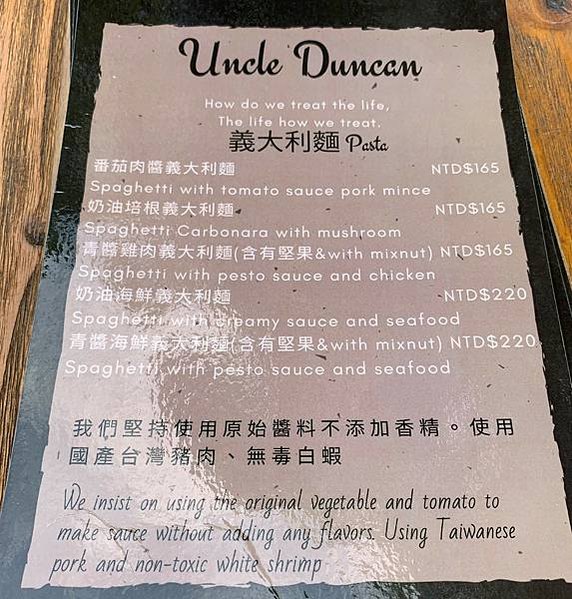 Uncle Duncan
How do we treat the life,
The life how we treat.
義大利麵 Pasta
番茄肉醬義大利麵 NTD$165
Spaghetti with tomato sauce pork mince
奶油培根義大利麵 NTD$165
Spaghetti Carbonara with mushroom
青醬雞肉義大利麵(含有堅果&with mixnut) NTD$165
Spaghetti with pesto sauce and chicken
奶油海鮮義大利麵 NTD$220
Spaghetti with creamy sauce and seafood
青醬海鮮義大利麵(含有堅果&with mixnut) NTD$220
Spaghetti with pesto sauce and seafood
我們堅持使用原始醬料不添加香精。使用
國產台灣豬肉、無毒白蝦
We insist on using the original vegetable and tomato to
make sauce without adding any flavors. Using Taiwanese
pork and non-toxic white shrimp